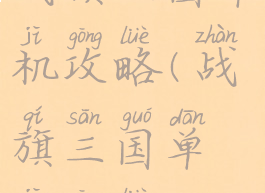 jī gōng lüè zhàn
机攻略(战
qí sān guó dān
旗三国单